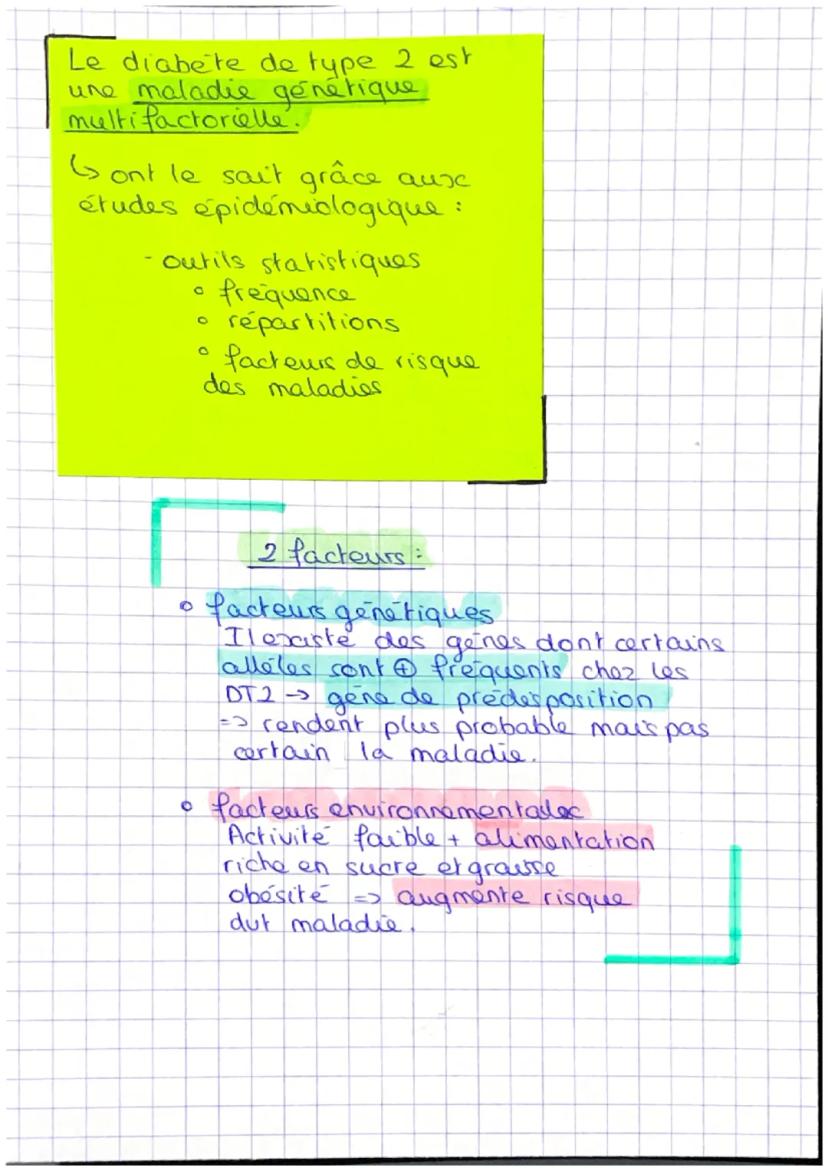 Le diabète de type 2 est
une maladie génétique
multifactorielle.
↳ ont le sait grâce aux
études épidémiologique :
- outils statistiques
° fréquence
° répartitions
° facteurs de risque
des maladies
2 facteurs :
° facteurs génétiques
Il existe des gènes dont certains
allèles sont ⊕ fréquents chez les
DT2 → gène de prédesposition
=> rendent plus probable mais pas
certain la maladie.
° facteurs environnementales
Activité faible + alimentation
riche en sucre et graisse
obésité => augmente risque
dut maladie.